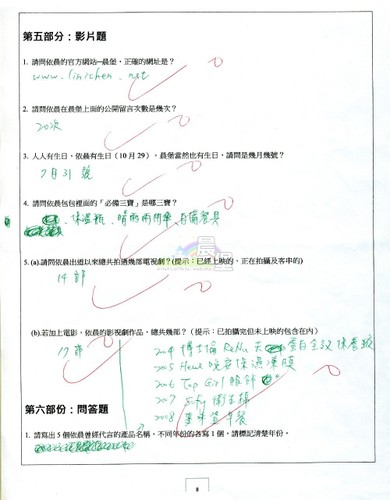 第五部分：影片題
1. 請問依晨的官方網站─晨堡，正確的網址是？
www.linichen.net
2. 請問依晨在晨堡上面的公開留言次數是幾次？
20次
3. 人人有生日，依晨有生日(10月29)，晨堡當然也有生日，請問是幾月幾號？
7月31號
4. 請問依晨包包裡面的「必備三寶」是哪三寶？
保溫瓶、晴雨兩用傘、自備餐具
5. (a).請問依晨出道以來總共拍過幾部電視劇？(提示：已經上映的，正在拍攝及客串的)
14部
(b).若加上電影，依晨的影視劇作品，總共幾部？（提示：已拍攝完但未上映的包含在內）
17部
2004 博士倫 ReNu
2005
2006 Top Girl
2007
2008
第六部份：問答題
1. 請寫出5個依晨曾經代言的產品名稱，不同年份的各寫1個，請標記清楚年份。
8